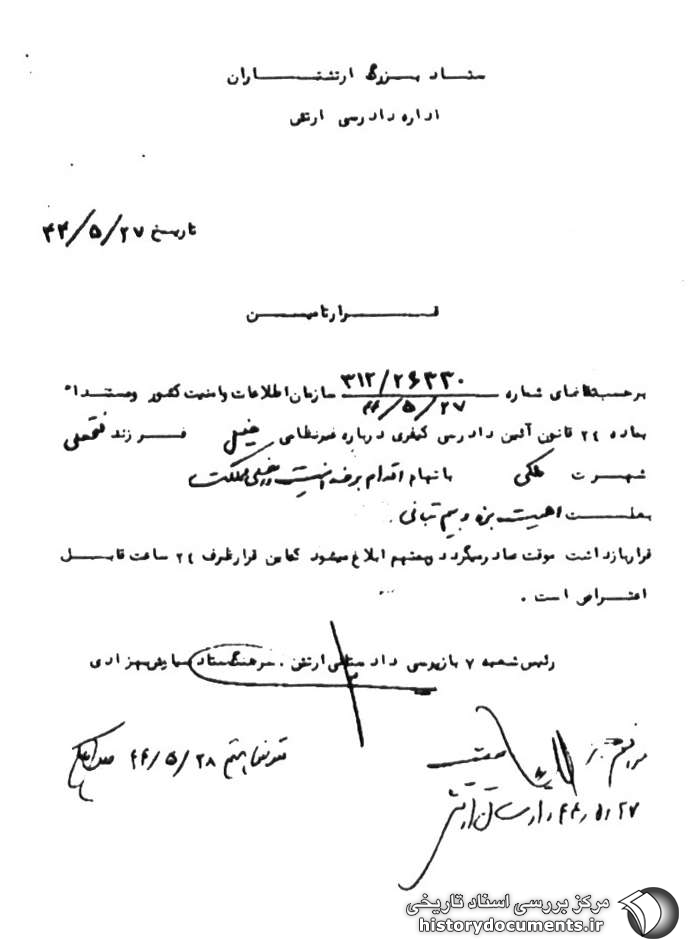 ستاد بزرگ ارتشتاران
اداره دادرسی ارتش
تاریخ ۴۴/۵/۲۷
قرار تامین
برحسب تقاضای شماره ۳۱۲/۲۶۳۳۰ سازمان اطلاعات و امنیت کشور و مستنداً
۴۴/۵/۲۷
بماده ۲۴ قانون آئین دادرسی کیفری درباره غیرنظامی خلیل فرزند فتحعلی
شهرت ملکی باتهام اقدام برضد امنیت داخلی مملکت
بعلت اهمیت بزه و بیم تبانی.
قرار بازداشت موقت صادر میگردد و بمتهم ابلاغ میشود که این قرار ظرف ۲۴ ساعت قابل
اعتراض است.
رئیس شعبه ۷ بازپرسی دادستانی ارتش. سرهنگ ستاد بهزادی
موافقم
۴۴/۵/۲۷ دادستان ارتش
۴۴/۵/۲۸
مرکز بررسی اسناد تاریخی
historydocuments.ir